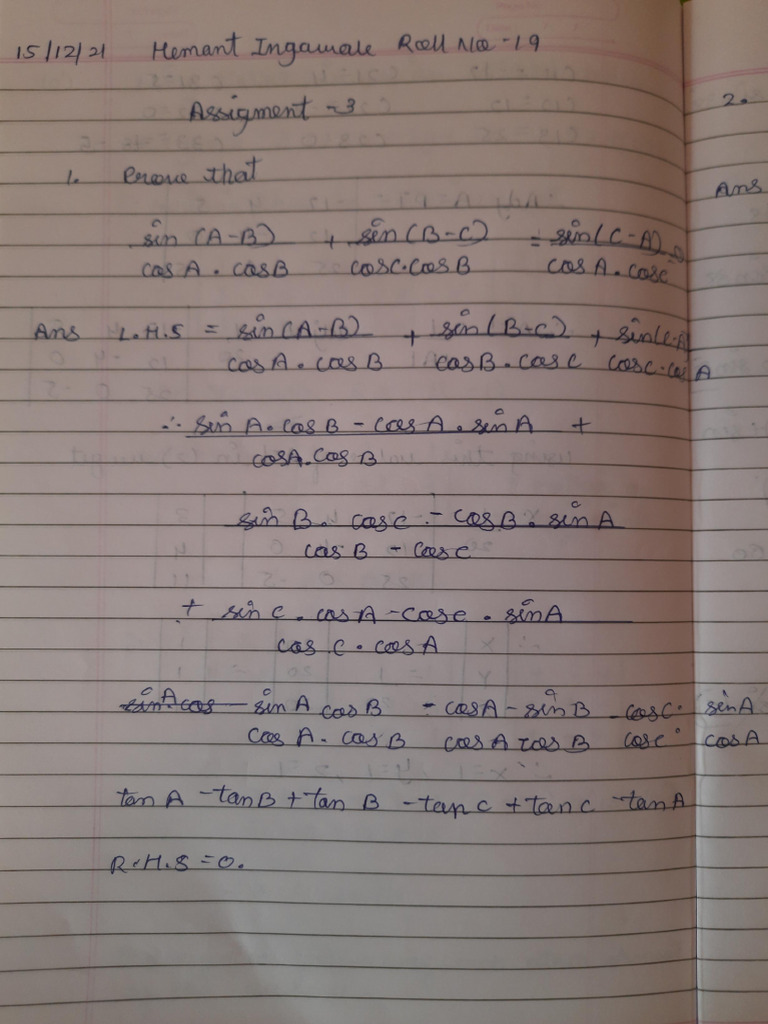 15/12/21 Hemant Ingawale Roll No -19
Assigment -3
1. Prove that
sin (A-B) + sin(B-C) = sin(C-A)
cosA . cosB cosC.cosB cosA . cosC
Ans L.H.S = sin(A-B) + sin(B-C) + sin(C-A)
cosA . cosB cosB . cosC cosC.cosA
∴ sin A.cosB - cosA . sinA +
cosA.cosB
sin B. cosC - cosB . sinA
cosB - cosC
+ sinC . cosA - cosC . sinA
cos C . cosA
sinA cosB - cosA - sinB cosC . sinA
cosA . cosB cosA cosB cosC . cosA
tanA - tanB + tanB - tanC + tanC - tanA
R.H.S = 0.
2.
Ans